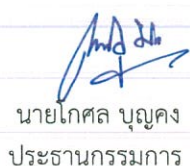 นายโกศล บุญคง
ประธานกรรมการ